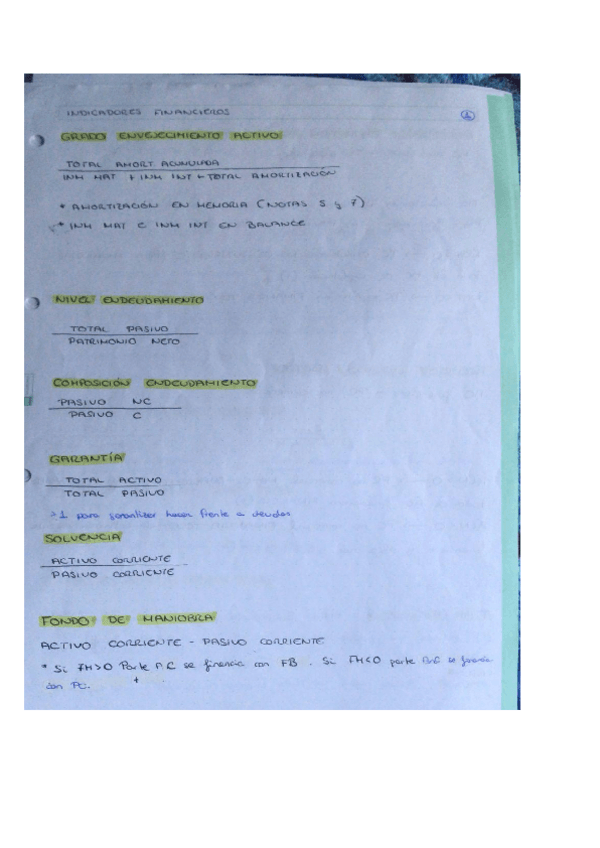 INDICADORES FINANCIEROS
GRADO ENVEJECIMIENTO ACTIVO
TOTAL AMORT ACUMULADA
INM MAT + INM INT + TOTAL AMORTIZACIÓN
* AMORTIZACIÓN EN MEMORIA (NOTAS 5 y 7)
* INM MAT E INM INT EN BALANCE
NIVEL ENDEUDAMIENTO
TOTAL PASIVO
PATRIMONIO NETO
COMPOSICIÓN ENDEUDAMIENTO
PASIVO NC
PASIVO C
GARANTÍA
TOTAL ACTIVO
TOTAL PASIVO
>1 para garantizar hacer frente a deudas
SOLVENCIA
ACTIVO CORRIENTE
PASIVO CORRIENTE
FONDO DE MANIOBRA
ACTIVO CORRIENTE - PASIVO CORRIENTE
* Si FM>0 Parte AC se financia con FB. Si FM<0 parte se financia
con PC.